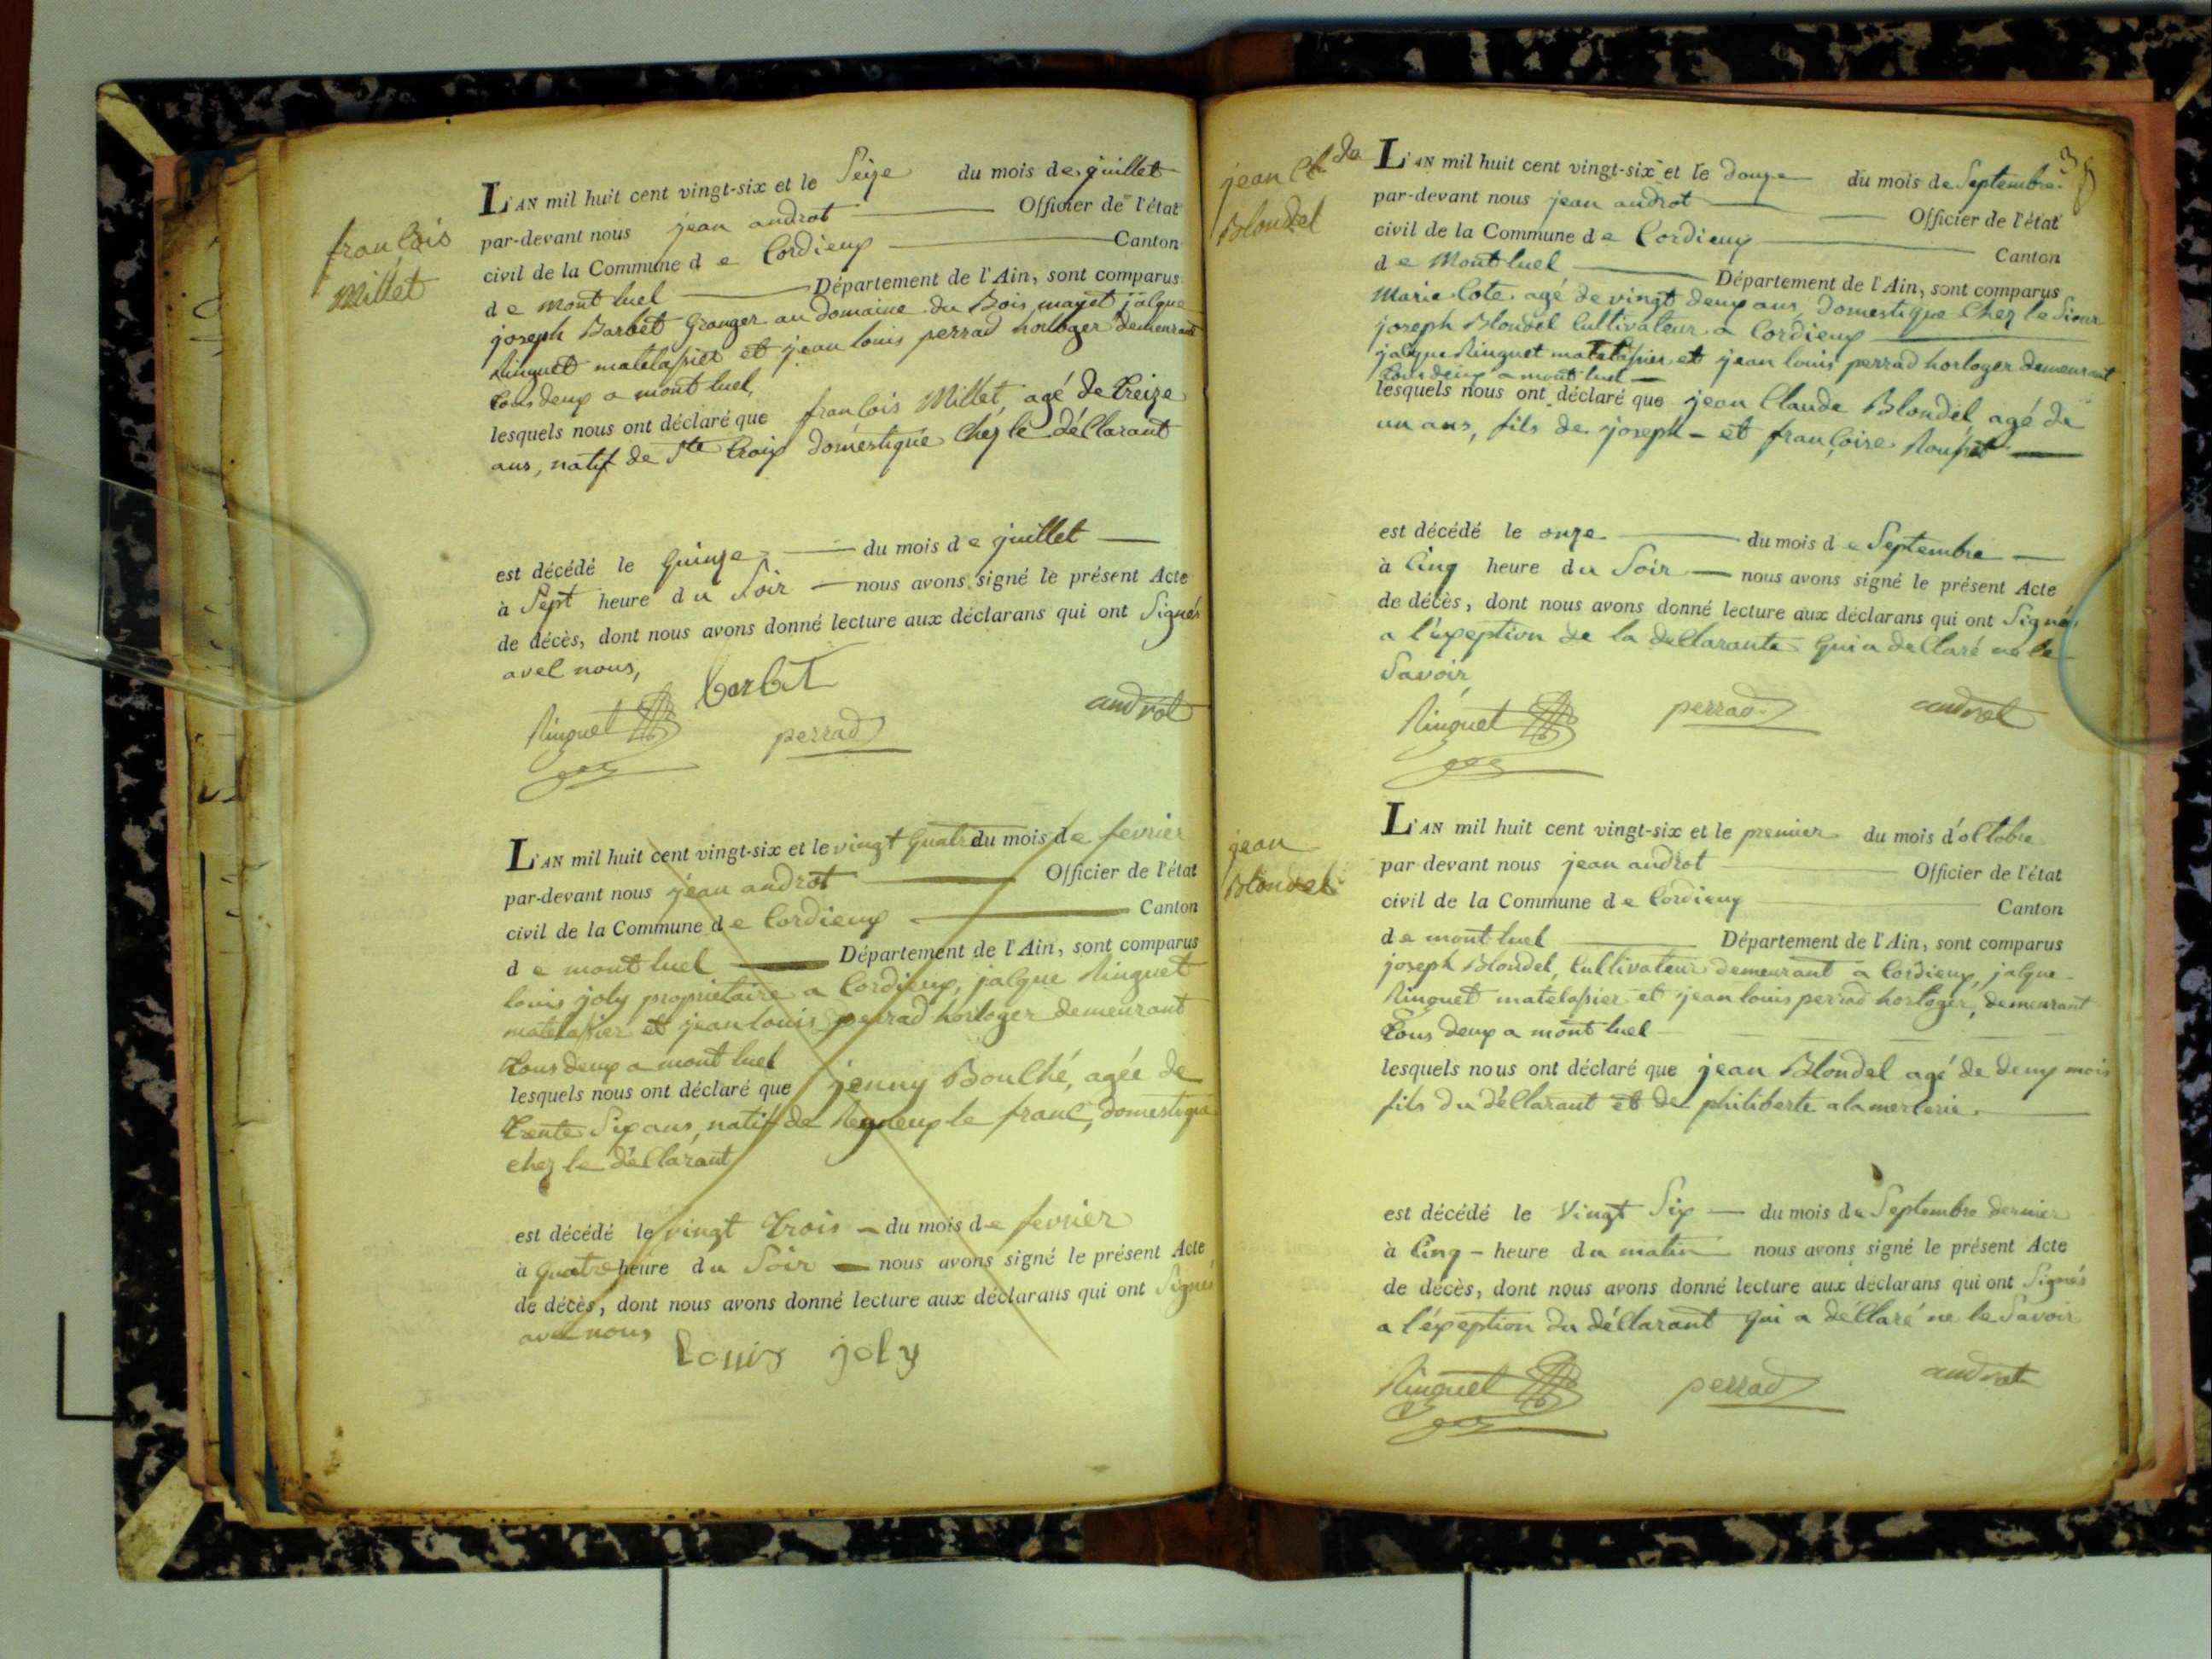 françois
Millet
L'AN mil huit cent vingt-six et le Seize du mois de juillet
par-devant nous jean androt Officier de l'état
civil de la Commune de Cordieux Canton
de montluel Département de l'Ain, sont comparus
joseph Barbet Granger au domaine du Bois mayet jacque
Ringuet matelassier et jean louis perrad horloger demeurant
tous deux a montluel,
lesquels nous ont déclaré que françois Millet, agé de treize
ans, natif de Ste Croix domestique chez le déclarant
est décédé le quinze du mois de juillet
à Sept heure du Soir nous avons signé le présent Acte
de décès, dont nous avons donné lecture aux déclarans qui ont Signés
avec nous,
barbet
Ringuet perrad androt
L'AN mil huit cent vingt-six et le vingt quatre du mois de fevrier
par-devant nous jean androt Officier de l'état
civil de la Commune de Cordieux Canton
de montluel Département de l'Ain, sont comparus
louis joly proprietaire a Cordieux, jacque Ringuet
matelassier et jean louis perrad horloger demeurant
tous deux a montluel
lesquels nous ont déclaré que jenny Bouché, agée de
trente Six ans, natif de le franc, domestique
chez le déclarant
est décédé le vingt trois du mois de fevrier
à quatre heure du Soir nous avons signé le présent Acte
de décès, dont nous avons donné lecture aux déclarans qui ont Signés
avec nous
louis joly
jean Cl.de
Blondel
L'AN mil huit cent vingt-six et le douze du mois de Septembre
par-devant nous jean androt Officier de l'état
civil de la Commune de Cordieux Canton
de Montluel Département de l'Ain, sont comparus
Marie Cote agé de vingt deux ans, Domestique chez le Sieur
joseph Blondel Cultivateur a Cordieux
jacque Ringuet matelassier et jean louis perrad horloger demeurant
tous deux a montluel
lesquels nous ont déclaré que jean Claude Blondel, agé de
un ans, fils de joseph et françoise
est décédé le onze du mois de Septembre
à Cinq heure du Soir nous avons signé le présent Acte
de décès, dont nous avons donné lecture aux déclarans qui ont Signés
a l'exeption de la declarante qui a declaré ne le
Savoir
Ringuet perrad androt
jean
Blondel
L'AN mil huit cent vingt-six et le premier du mois d'octobre
par devant nous jean androt Officier de l'état
civil de la Commune de Cordieux Canton
de montluel Département de l'Ain, sont comparus
joseph Blondel, Cultivateur demeurant a Cordieux, jacque
Ringuet matelassier et jean louis perrad horloger, demeurant
tous deux a montluel
lesquels nous ont déclaré que jean Blondel agé de deux mois
fils du déclarant et de philiberte alamercerie
est décédé le Vingt Six du mois de Septembre dernier
à Cinq heure du matin nous avons signé le présent Acte
de décès, dont nous avons donné lecture aux déclarans qui ont Signés
a l'exeption du déclarant qui a déclaré ne le Savoir
Ringuet perrad androt